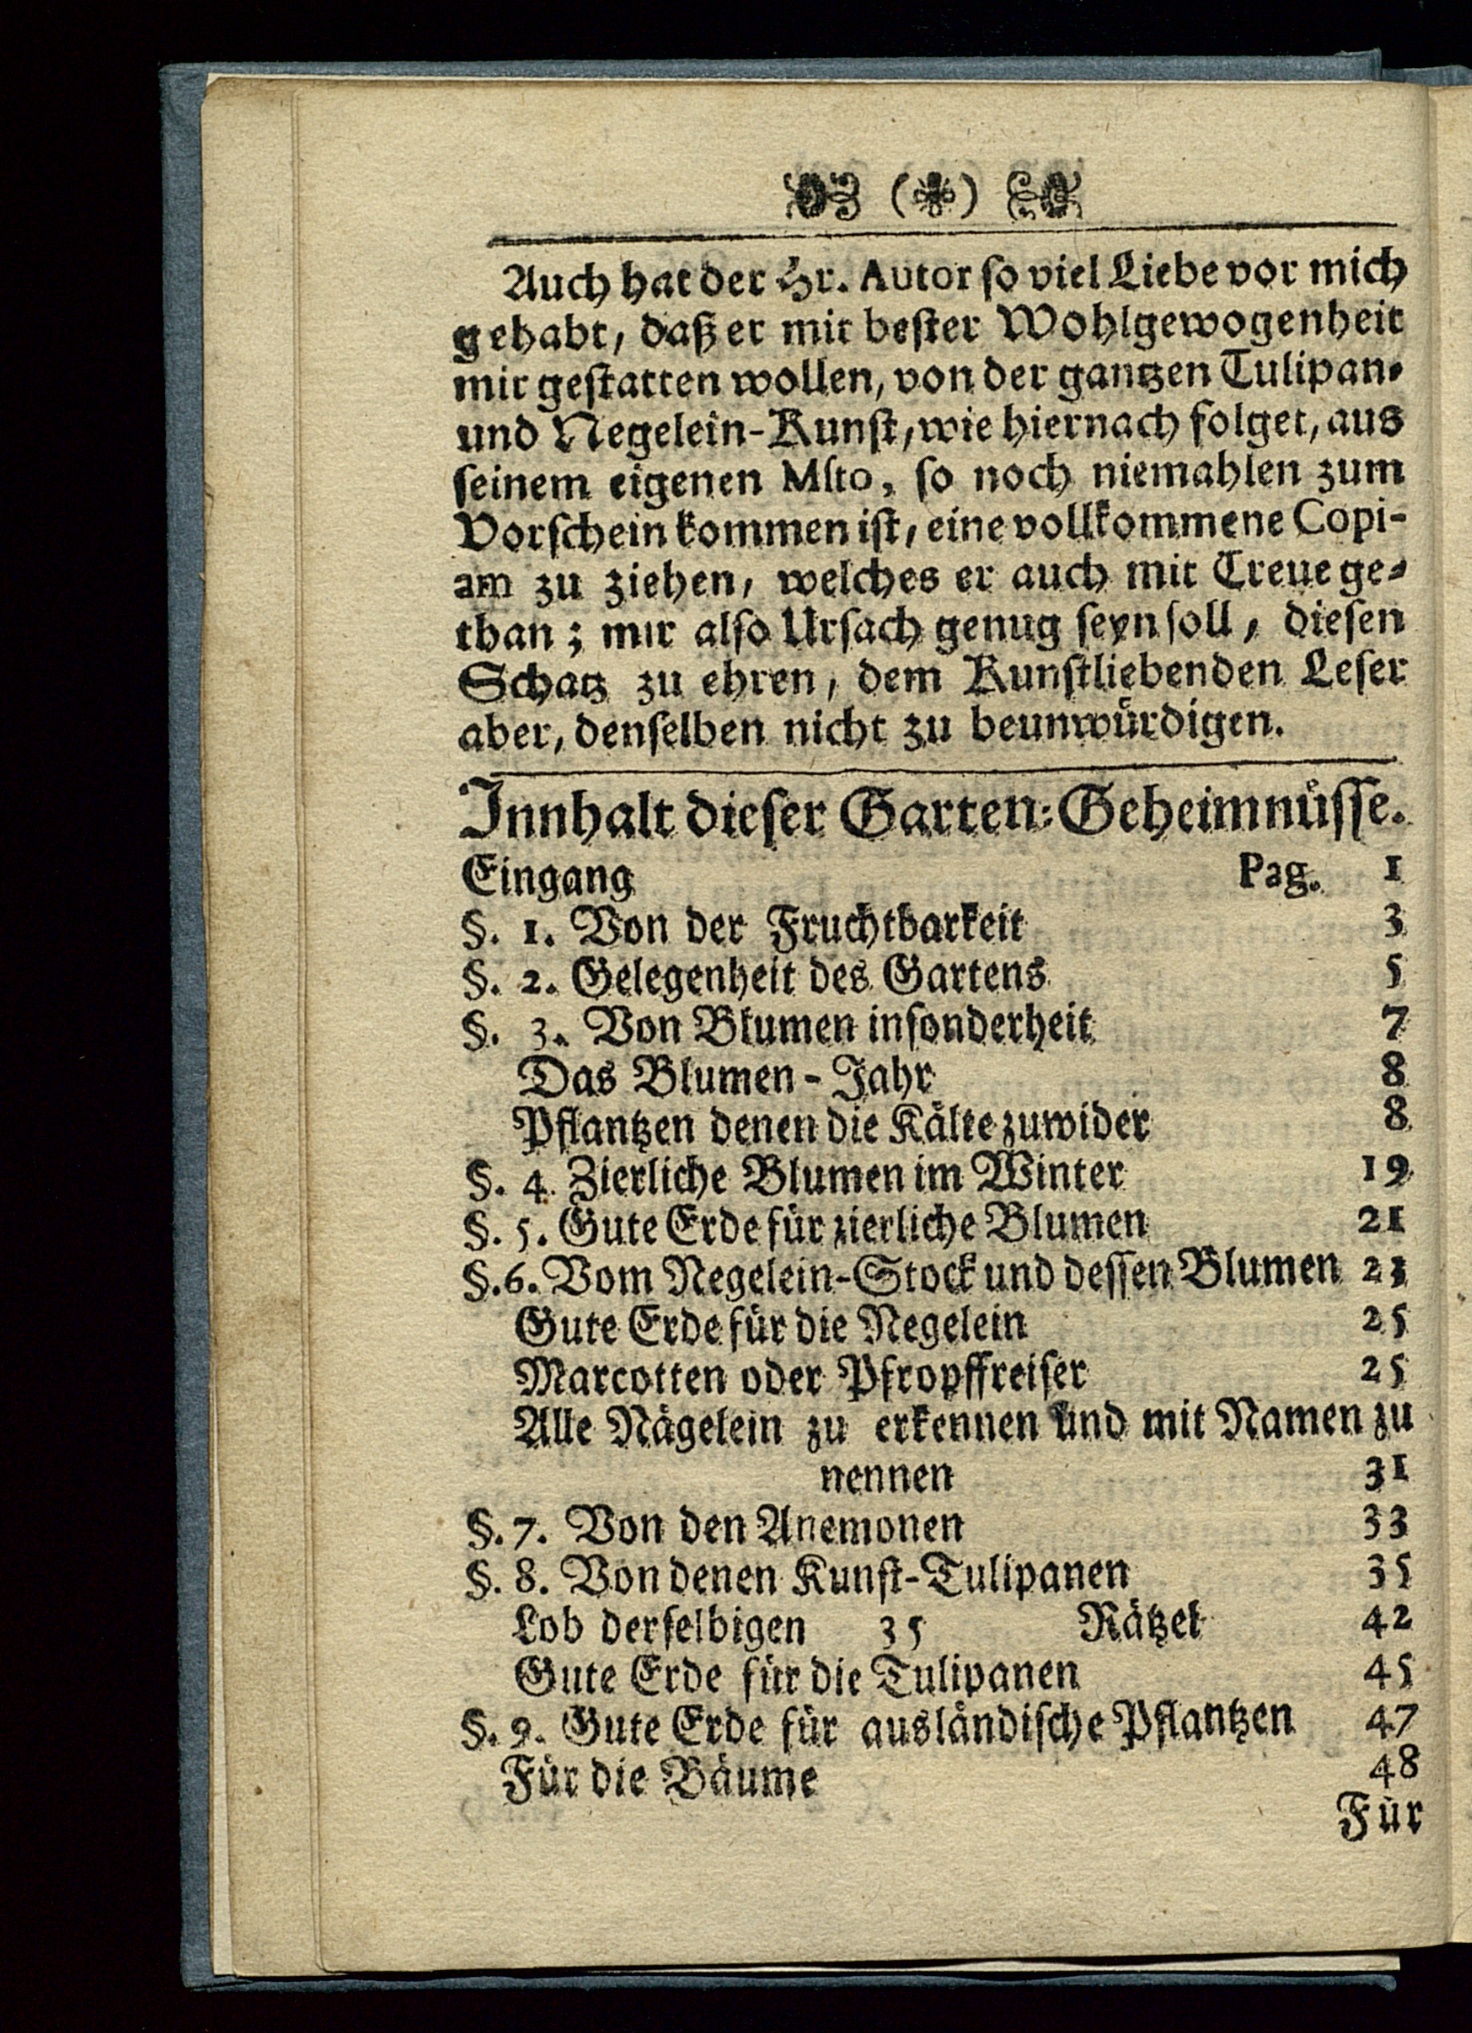 (*)
Auch hat der Hr. Autor so viel Liebe vor mich
gehabt, daß er mit bester Wohlgewogenheit
mir gestatten wollen, von der gantzen Tulipan-
und Negelein-Kunst, wie hiernach folget, aus
seinem eigenen Msto, so noch niemahlen zum
Vorschein kommen ist, eine vollkommene Copi-
am zu ziehen, welches er auch mit Treue ge-
than; mir also Ursach genug seyn soll, diesen
Schatz zu ehren, dem Kunstliebenden Leser
aber, denselben nicht zu beunwürdigen.
Innhalt dieser Garten-Geheimnüsse.
Eingang Pag. 1
§. 1. Von der Fruchtbarkeit 3
§. 2. Gelegenheit des Gartens 5
§. 3. Von Blumen insonderheit 7
Das Blumen-Jahr 8
Pflantzen denen die Kälte zuwider 8
§. 4. Zierliche Blumen im Winter 19
§. 5. Gute Erde für zierliche Blumen 21
§. 6. Vom Negelein-Stock und dessen Blumen 23
Gute Erde für die Negelein 25
Marcotten oder Pfropffreiser 25
Alle Nägelein zu erkennen und mit Namen zu
nennen 31
§. 7. Von den Anemonen 33
§. 8. Von denen Kunst-Tulipanen 35
Lob derselbigen 35 Rätzel 42
Gute Erde für die Tulipanen 45
§. 9. Gute Erde für ausländische Pflantzen 47
Für die Bäume 48
Für